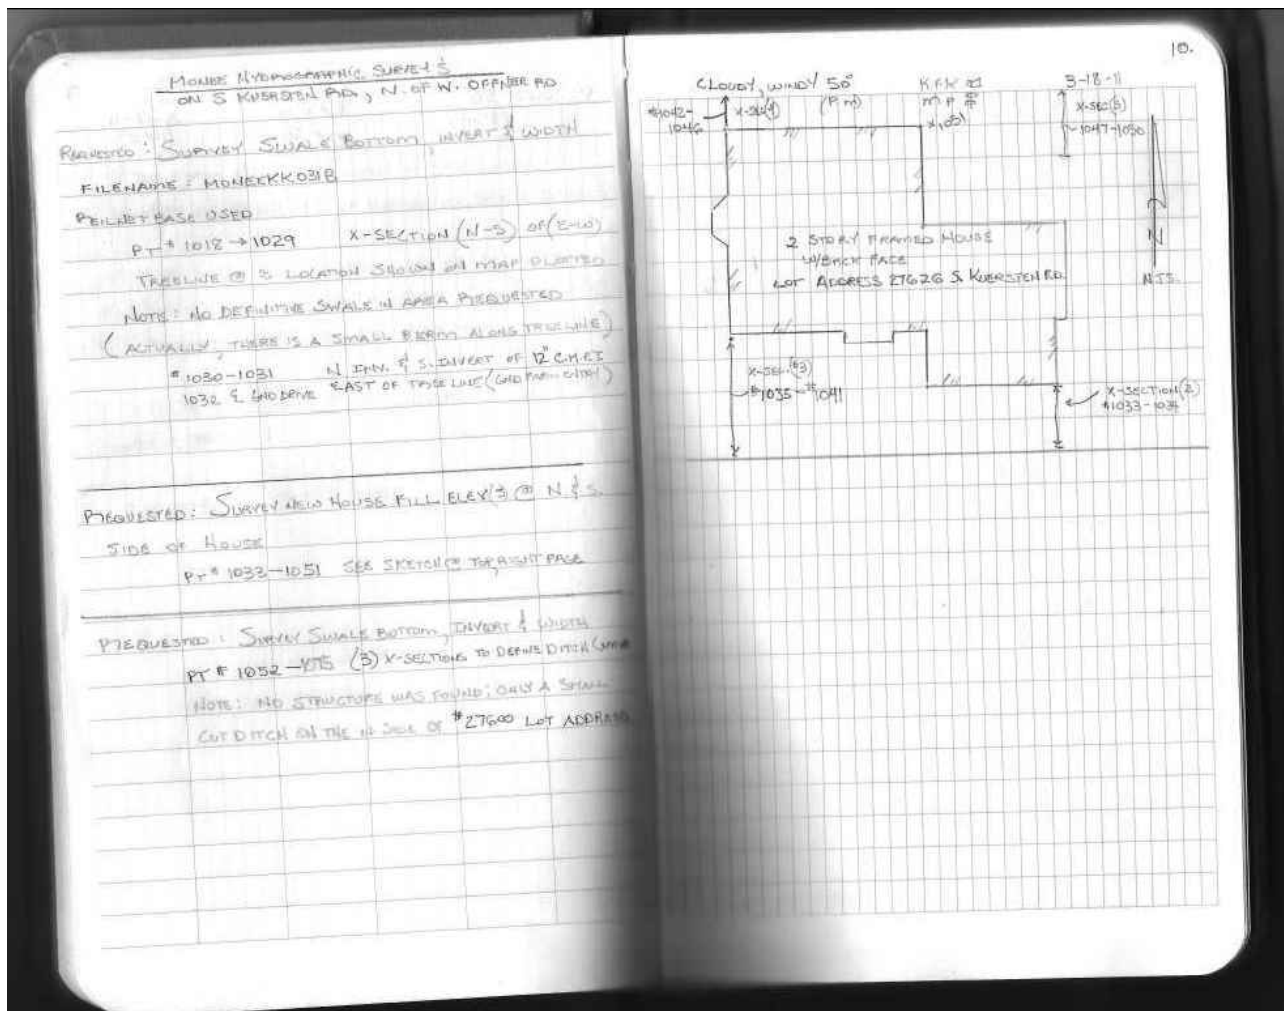 MONEE HYDROGRAPHIC SURVEYS
ON S KUERSTEN RD., N. OF W. OFFNER RD
REQUESTED: SURVEY SWALE BOTTOM, INVERT & WIDTH
FILENAME: MONEEKK031B
REILNET BASE USED
PT # 1018 → 1029 X-SECTION (N-S) OF (E-W)
TREELINE @ 3 LOCATION SHOWN ON MAP PLOTTED
NOTE: NO DEFINITIVE SWALE IN AREA REQUESTED
(ACTUALLY, THERE IS A SMALL BERM ALONG TREELINE)
# 1030-1031 N INV. & S. INVERT OF 12" C.M.P.
1032 EAST OF TREE LINE
REQUESTED: SURVEY NEW HOUSE FILL ELEV(S) @ N & S.
SIDE OF HOUSE
PT # 1033-1051 SEE SKETCH @ TOP RIGHT PAGE
REQUESTED: SURVEY SWALE BOTTOM, INVERT & WIDTH
PT # 1052- (3) X-SECTIONS TO DEFINE DITCH
NOTE: NO STRUCTURE WAS FOUND; ONLY A SMALL
CUT DITCH ON THE N SIDE OF #27600 LOT ADDRESS
10.
CLOUDY, WINDY 50° KFK 3-18-11
(P.M)
#1042-
1046
X-SEC(4)
X-SEC(5)
1047-1050
2 STORY FRAMED HOUSE
W/BRICK FACE
LOT ADDRESS 27626 S. KUERSTEN RD.
N
N.T.S.
X-SEC.(#3)
#1035-#1041
X-SECTION(2)
#1033-1034